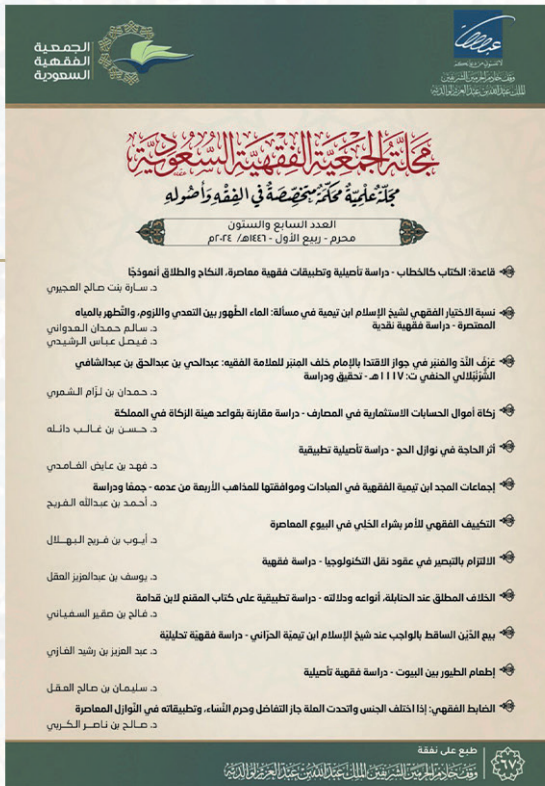 الجمعية
الفقهية
السعودية
وقف خادم الحرمين الشريفين
الملك عبدالله بن عبدالعزيز لوالديه
مجلة الجمعية الفقهية السعودية
مجلة علمية محكمة متخصصة في الفقه وأصوله
العدد السابع والستون
محرم - ربيع الأول - ١٤٤٦هـ/ ٢٠٢٤م
قاعدة: الكتاب كالخطاب - دراسة تأصيلية وتطبيقات فقهية معاصرة، النكاح والطلاق أنموذجًا
د. سارة بنت صالح العجيري
نسبة الاختيار الفقهي لشيخ الإسلام ابن تيمية في مسألة: الماء الطَّهور بين التعدي واللزوم، والتَّطهر بالمياه
المعتصرة - دراسة فقهية نقدية
د. سالم حمدان العدواني
د. فيصل عباس الرشيدي
عَرْف النَّدِّ والعَنبَر في جواز الاقتدا بالإمام خلف المِنبَر للعلامة الفقيه: عبدالحي بن عبدالحق بن عبدالشافي
الشُّرُنْبُلالي الحنفي ت: ١١١٧هـ - تحقيق ودراسة
د. حمدان بن لزّام الشمري
زكاة أموال الحسابات الاستثمارية في المصارف - دراسة مقارنة بقواعد هيئة الزكاة في المملكة
د. حسن بن غالب دائله
أثر الحاجة في نوازل الحج - دراسة تأصيلية تطبيقية
د. فهد بن عايض الغامدي
إجماعات المجد ابن تيمية الفقهية في العبادات وموافقتها للمذاهب الأربعة من عدمه - جمعًا ودراسة
د. أحمد بن عبدالله الفريح
التكييف الفقهي للأمر بشراء الحُلي في البيوع المعاصرة
د. أيوب بن فريح البهلال
الالتزام بالتبصير في عقود نقل التكنولوجيا - دراسة فقهية
د. يوسف بن عبدالعزيز العقل
الخلاف المطلق عند الحنابلة، أنواعه ودلالته - دراسة تطبيقية على كتاب المقنع لابن قدامة
د. فالح بن صقير السفياني
بيع الدَّيْن الساقط بالواجب عند شيخ الإسلام ابن تيميَّة الحرّاني - دراسة فقهيّة تحليليّة
د. عبد العزيز بن رشيد الغازي
إطعام الطيور بين البيوت - دراسة فقهية تأصيلية
د. سليمان بن صالح العقل
الضابط الفقهي: إذا اختلف الجنس واتحدت العلة جاز التفاضل وحرم النَّساء، وتطبيقاته في النَّوازل المعاصرة
د. صالح بن ناصر الكربي
طبع على نفقة
وقف خادم الحرمين الشريفين الملك عبدالله بن عبدالعزيز لوالديه
٦٧